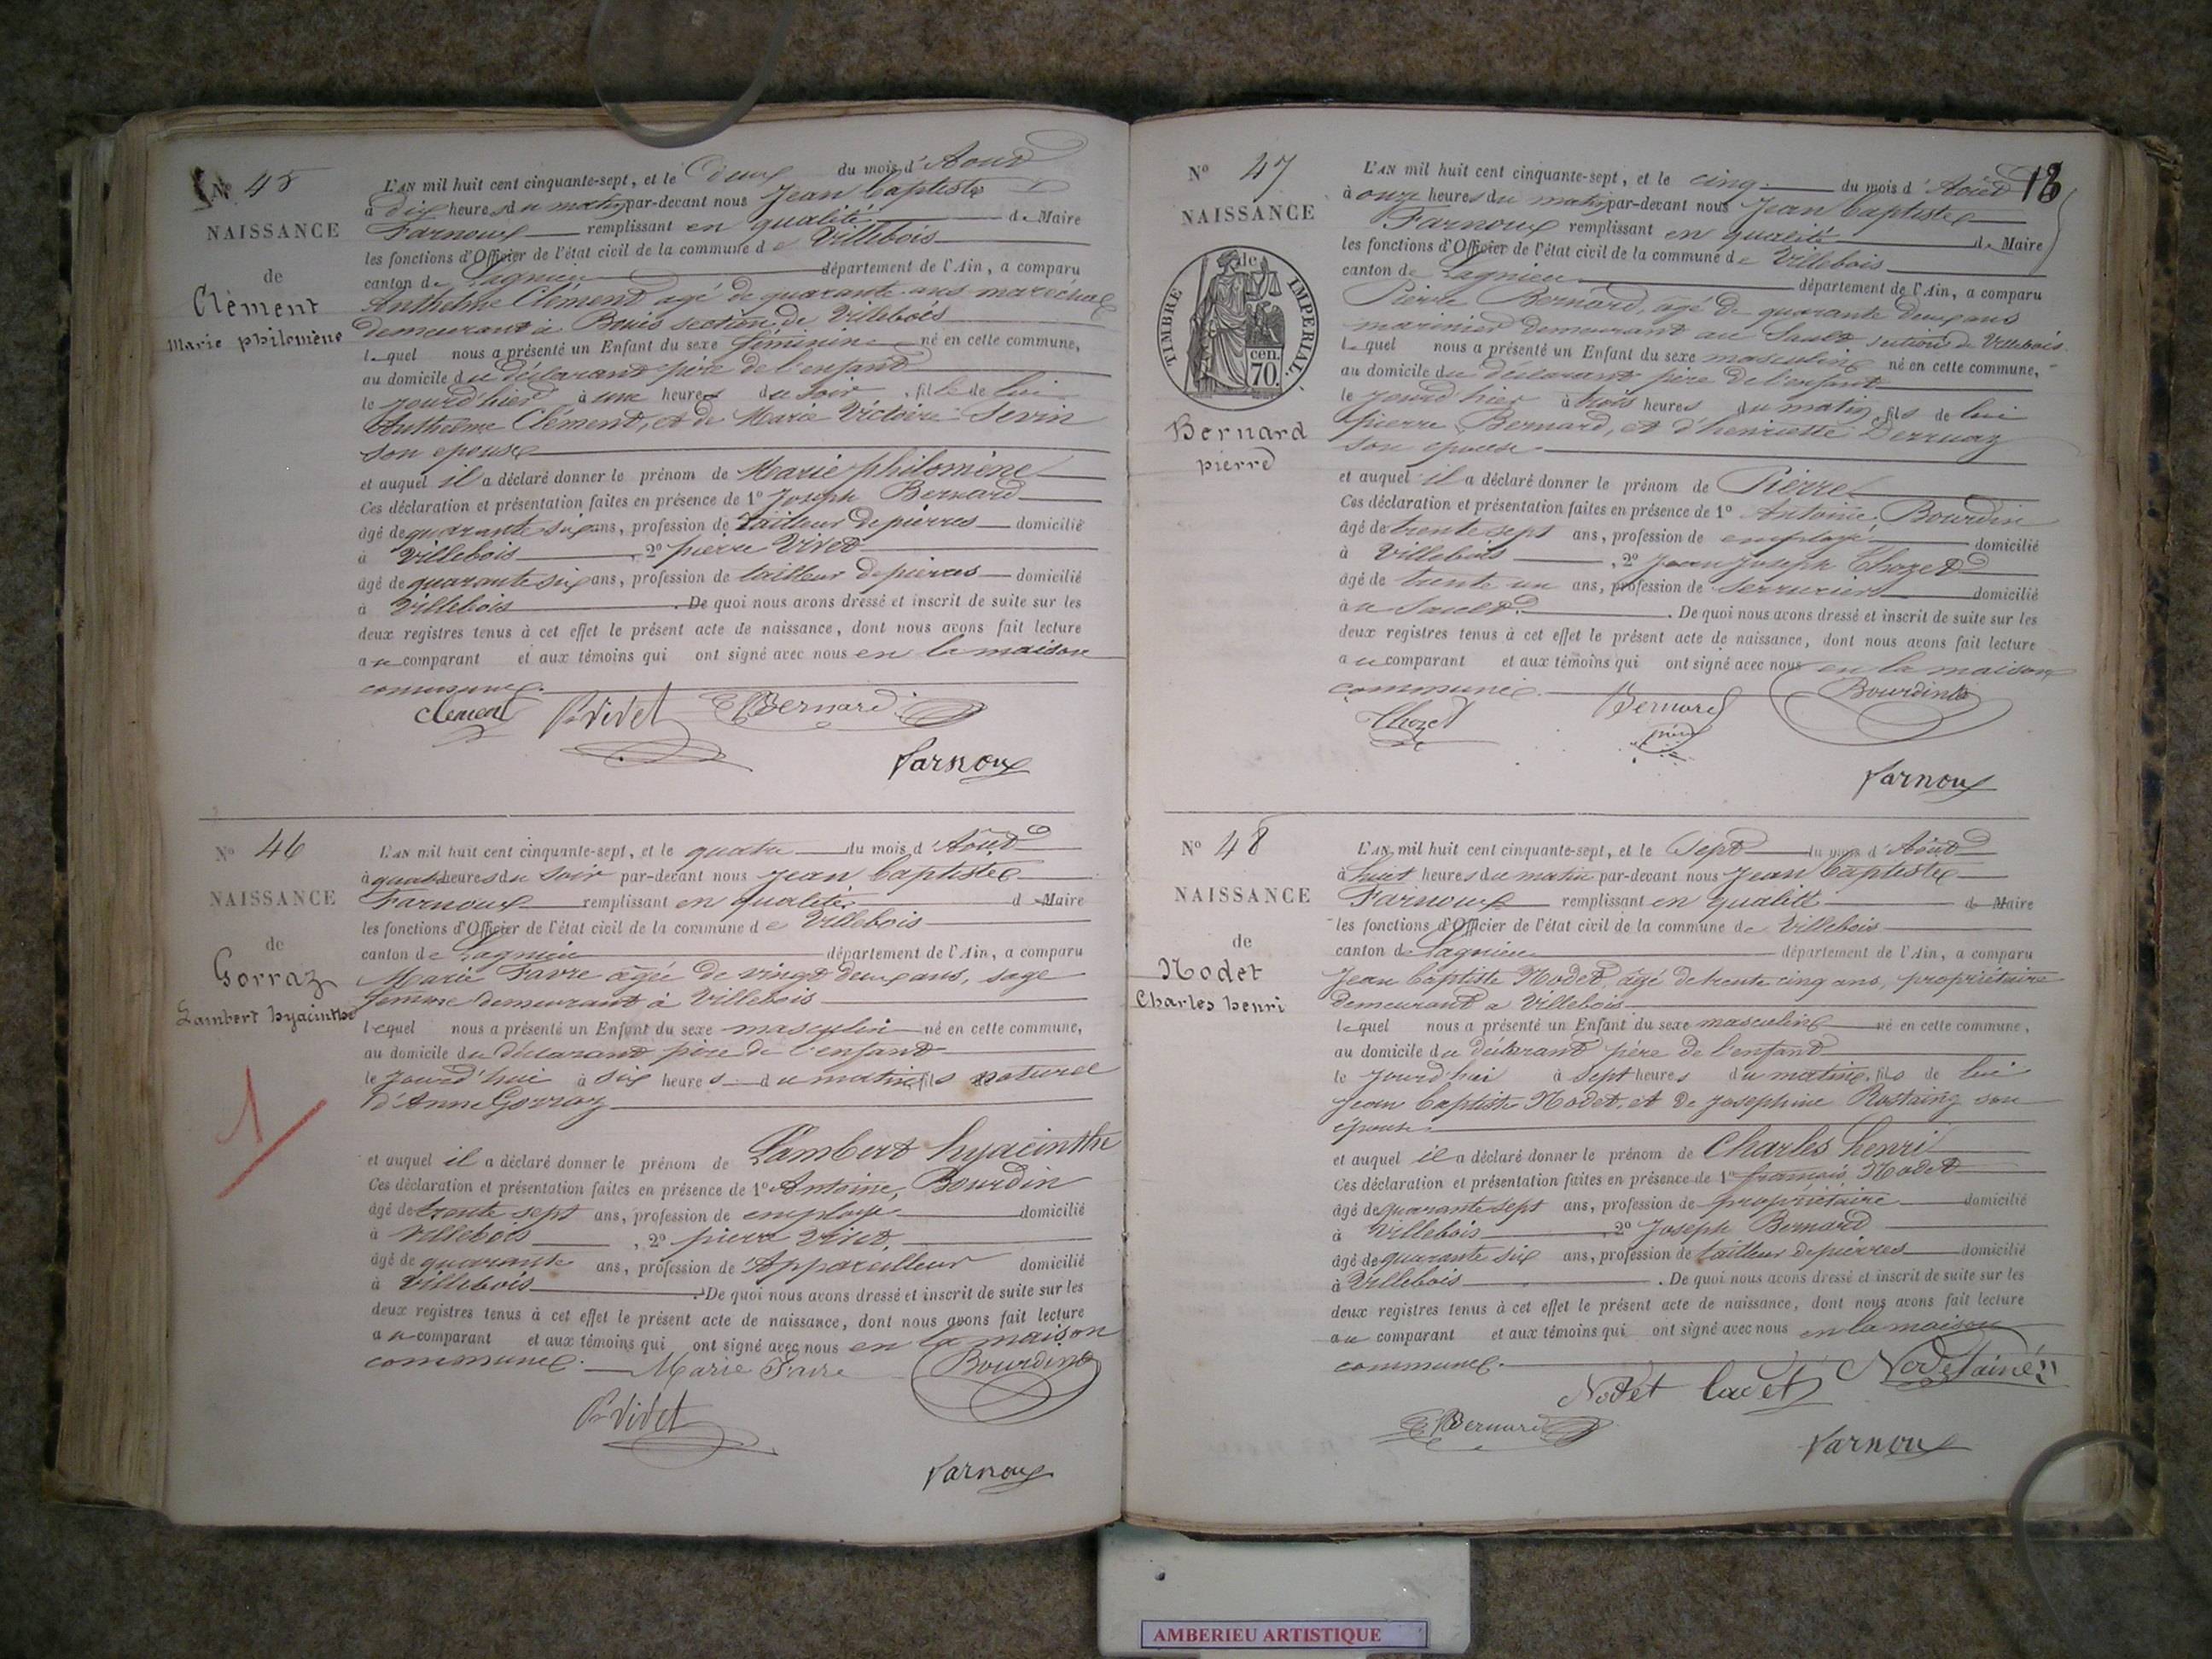 Nº 45
NAISSANCE
de
Clément
Marie philomène
L'AN mil huit cent cinquante-sept, et le deux du mois d'Aout
à dix heures du matin par-devant nous Jean Baptiste
Farnoux remplissant en qualité de Maire
les fonctions d'Officier de l'état civil de la commune de Villebois
canton de Lagnieu département de l'Ain, a comparu
Anthelme Clément agé de quarante ans maréchal
demeurant à Bouis section de Villebois
lequel nous a présenté un Enfant du sexe féminin né en cette commune,
au domicile du déclarant père de l'enfant
le jourd'hier à une heure du soir, fille de lui
Anthelme Clément, et de Marie Victoire Sevin
son epouse
et auquel il a déclaré donner le prénom de Marie philomène
Ces déclaration et présentation faites en présence de 1º Joseph Bernard
âgé de quarante six ans, profession de tailleur de pierres domicilié
à Villebois, 2º pierre Vivet
âgé de quarante six ans, profession de tailleur de pierres domicilié
à Villebois. De quoi nous avons dressé et inscrit de suite sur les
deux registres tenus à cet effet le présent acte de naissance, dont nous avons fait lecture
au comparant et aux témoins qui ont signé avec nous en la maison
commune.
Clement P. Vivet Bernard
Farnoux
Nº 46
NAISSANCE
de
Gorraz
Lambert hyacinthe
L'AN mil huit cent cinquante-sept, et le quatre du mois d'Aôut
à quatre heures du soir par-devant nous Jean Baptiste
Farnoux remplissant en qualité d Maire
les fonctions d'Officier de l'état civil de la commune de Villebois
canton de Lagnieu département de l'Ain, a comparu
Marie Favre agée de vingt deux ans, sage
femme demeurant à Villebois
lequel nous a présenté un Enfant du sexe masculin né en cette commune,
au domicile du déclarant père de l'enfant
le jourd'hui à six heures du matin, fils naturel
d'Anne Gorraz
et auquel il a déclaré donner le prénom de Lambert hyacinthe
Ces déclaration et présentation faites en présence de 1º Antoine, Bourdin
âgé de trente sept ans, profession de employé domicilié
à Villebois, 2º pierre Vivet,
âgé de quarante ans, profession de Appareilleur domicilié
à Villebois. De quoi nous avons dressé et inscrit de suite sur les
deux registres tenus à cet effet le présent acte de naissance, dont nous avons fait lecture
au comparant et aux témoins qui ont signé avec nous en la maison
commune. Marie Favre Bourdin
P. Vivet
Farnoux
1
18
Nº 47
NAISSANCE
TIMBRE IMPERIAL
70 cen.
Bernard
pierre
L'AN mil huit cent cinquante-sept, et le cinq du mois d'Aôut
à onze heures du matin par-devant nous Jean Baptiste
Farnoux remplissant en qualité de Maire
les fonctions d'Officier de l'état civil de la commune de Villebois
canton de Lagnieu département de l'Ain, a comparu
Pierre Bernard, agé de quarante deux ans
marinier demeurant au Sault section de Villebois.
lequel nous a présenté un Enfant du sexe masculin né en cette commune,
au domicile du déclarant père de l'enfant
le jourd'hier à trois heures du matin, fils de lui
pierre Bernard, et d'henriette Derruaz
son epouse.
et auquel il a déclaré donner le prénom de Pierre
Ces déclaration et présentation faites en présence de 1º Antoine, Bourdin
âgé de trente sept ans, profession de employé domicilié
à Villebois, 2º Jean Joseph Chozet
âgé de trente un ans, profession de Serrurier domicilié
au Sault. De quoi nous avons dressé et inscrit de suite sur les
deux registres tenus à cet effet le présent acte de naissance, dont nous avons fait lecture
au comparant et aux témoins qui ont signé avec nous en la maison
commune.
Chozet Bernard Bourdin
Farnoux
Nº 48
NAISSANCE
de
Nodet
Charles henri
L'AN mil huit cent cinquante-sept, et le Sept du mois d'Aôut
à huit heures du matin par-devant nous Jean Baptiste
Farnoux remplissant en qualité de Maire
les fonctions d'Officier de l'état civil de la commune de Villebois
canton de Lagnieu département de l'Ain, a comparu
Jean Baptiste Nodet, agé de trente cinq ans, propriétaire
demeurant a Villebois
lequel nous a présenté un Enfant du sexe masculin né en cette commune,
au domicile du déclarant père de l'enfant
le jourd'hui à Sept heures du matin, fils de lui
Jean Baptiste Nodet, et de Josephine Rostaing son
épouse
et auquel il a déclaré donner le prénom de Charles henri
Ces déclaration et présentation faites en présence de 1º françois Nodet
âgé de quarante sept ans, profession de propriétaire domicilié
à Villebois, 2º Joseph Bernard
âgé de quarante six ans, profession de tailleur de pierres domicilié
à Villebois. De quoi nous avons dressé et inscrit de suite sur les
deux registres tenus à cet effet le présent acte de naissance, dont nous avons fait lecture
au comparant et aux témoins qui ont signé avec nous en la maison
commune.
Nodet Cadet Nodet ainé
Bernard
Farnoux
AMBERIEU ARTISTIQUE